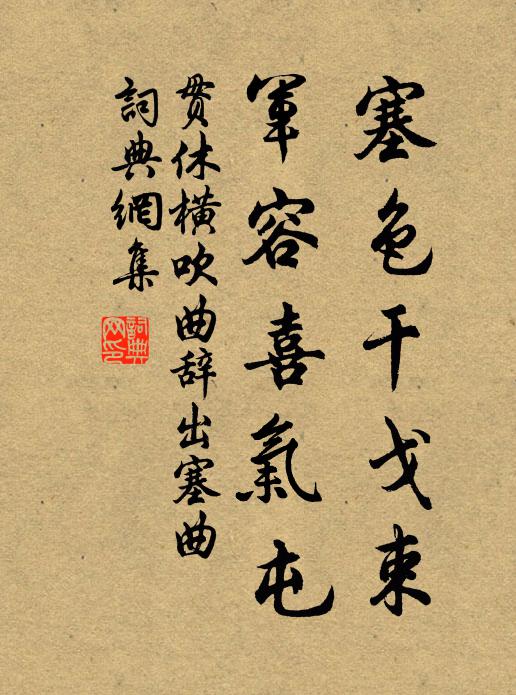 塞色干戈束
軍容喜氣屯
贯休横吹曲辞出塞曲
詞典網集
詞典网印